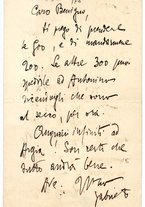 Caro Benigno,
ti prego di prendere
le 600, e di mandarmene
200. Le altre 300 puoi
spedirle ad Antonino
che sono
al secco, per ora.
Auguri infiniti ad
Argia. Son certo che
tutto andrà bene.
Ave.
Gabriele